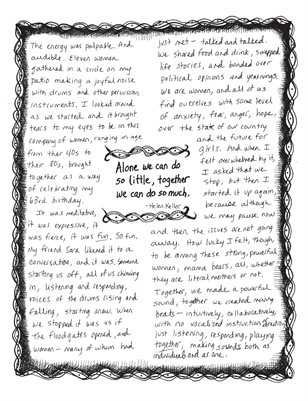 The energy was palpable. And
audible. Eleven women
gathered in a circle on my
patio making a joyful noise
with drums and other percussion
instruments. I looked around
as we started and it brought
tears to my eyes to be in this
company of women, ranging in age
from their 40s to
their 80s, brought
together as a way
of celebrating my
63rd birthday.
It was meditative,
it was expressive, it
was fierce, it was fun. So fun.
My friend Sara likened it to a
conversation, and it was, someone
starting us off, all of us chiming
in, listening and responding,
voices of the drums rising and
falling, starting anew. When
we stopped it was as if
the floodgates opened, and
women - many of whom had
Alone we can do
so little, together
we can do so much.
- Helen Keller
just met - talked and talked.
We shared food and drink, swapped
life stories, and bonded over
political opinions and yearnings.
We are women, and all of us
find ourselves with some level
of anxiety, fear, anger, hope,
over the state of our country
and the future for
girls. And when I
felt overwhelmed by it,
I asked that we
stop, but then I
started it up again
because although
we may pause now
and then, the issues are not going
away. How lucky I felt, though,
to be among these strong, powerful
women, mama bears, all, whether
they are literal mothers or not.
Together, we made a powerful
sound, together we created moving
beats - intuitively, collaboratively,
with no vocalized instruction or direction,
just listening, responding, playing
together, making sounds both as
individuals and as one.